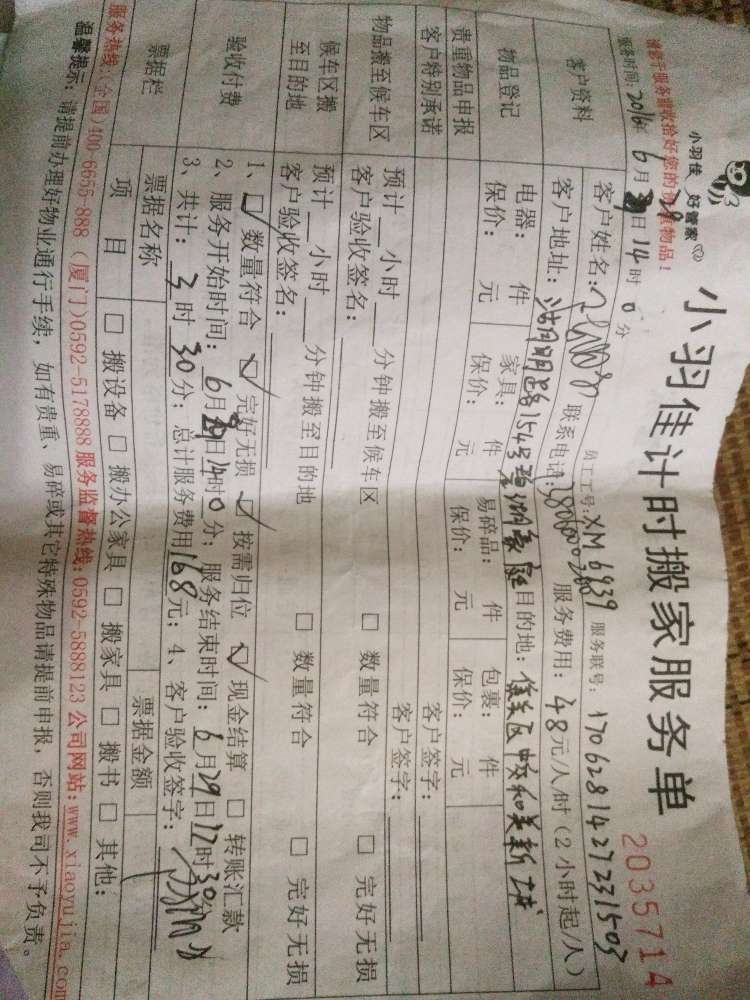 小羽佳 好管家
小羽佳计时搬家服务单
2035714
请您于服务前收拾好您的贵重物品!
员工工号:XM6939 服务联号:170628142723150​3
服务时间:2016年6月29日14时0分
客户资料
客户姓名: 联系电话: 服务费用:48元/人/时(2小时起/人)
客户地址: 154号 目的地:
物品登记
电器: 件 家具: 件 易碎品: 件 包裹: 件
保价: 元 保价: 元 保价: 元 保价: 元
贵重物品申报 客户签字:
客户特别承诺 客户签字:
物品搬至候车区
预计 小时 分钟搬至候车区 □ 数量符合 □ 完好无损
客户验收签名:
候车区搬至目的地
预计 小时 分钟搬至目的地 □ 数量符合 □ 完好无损
客户验收签名:
验收付费
1、☑ 数量符合 ☑ 完好无损 ☑ 按需归位 ☑ 现金结算 □ 转账汇款
2、服务开始时间:6月29日14时0分;服务结束时间:6月29日17时30分
3、共计:3时30分;总计服务费用168元;4、客户验收签字:
票据栏
票据名称 票据金额
项 目 □ 搬设备 □ 搬办公家具 □ 搬家具 □ 搬书 □ 其他:
服务热线:(全国)400-6655-888 (厦门)0592-5178888 服务监督热线:0592-5888123 公司网站:www.xiaoyujia.com
温馨提示:请提前办理好物业通行手续,如有贵重、易碎或其它特殊物品请提前申报,否则我司不予负责。